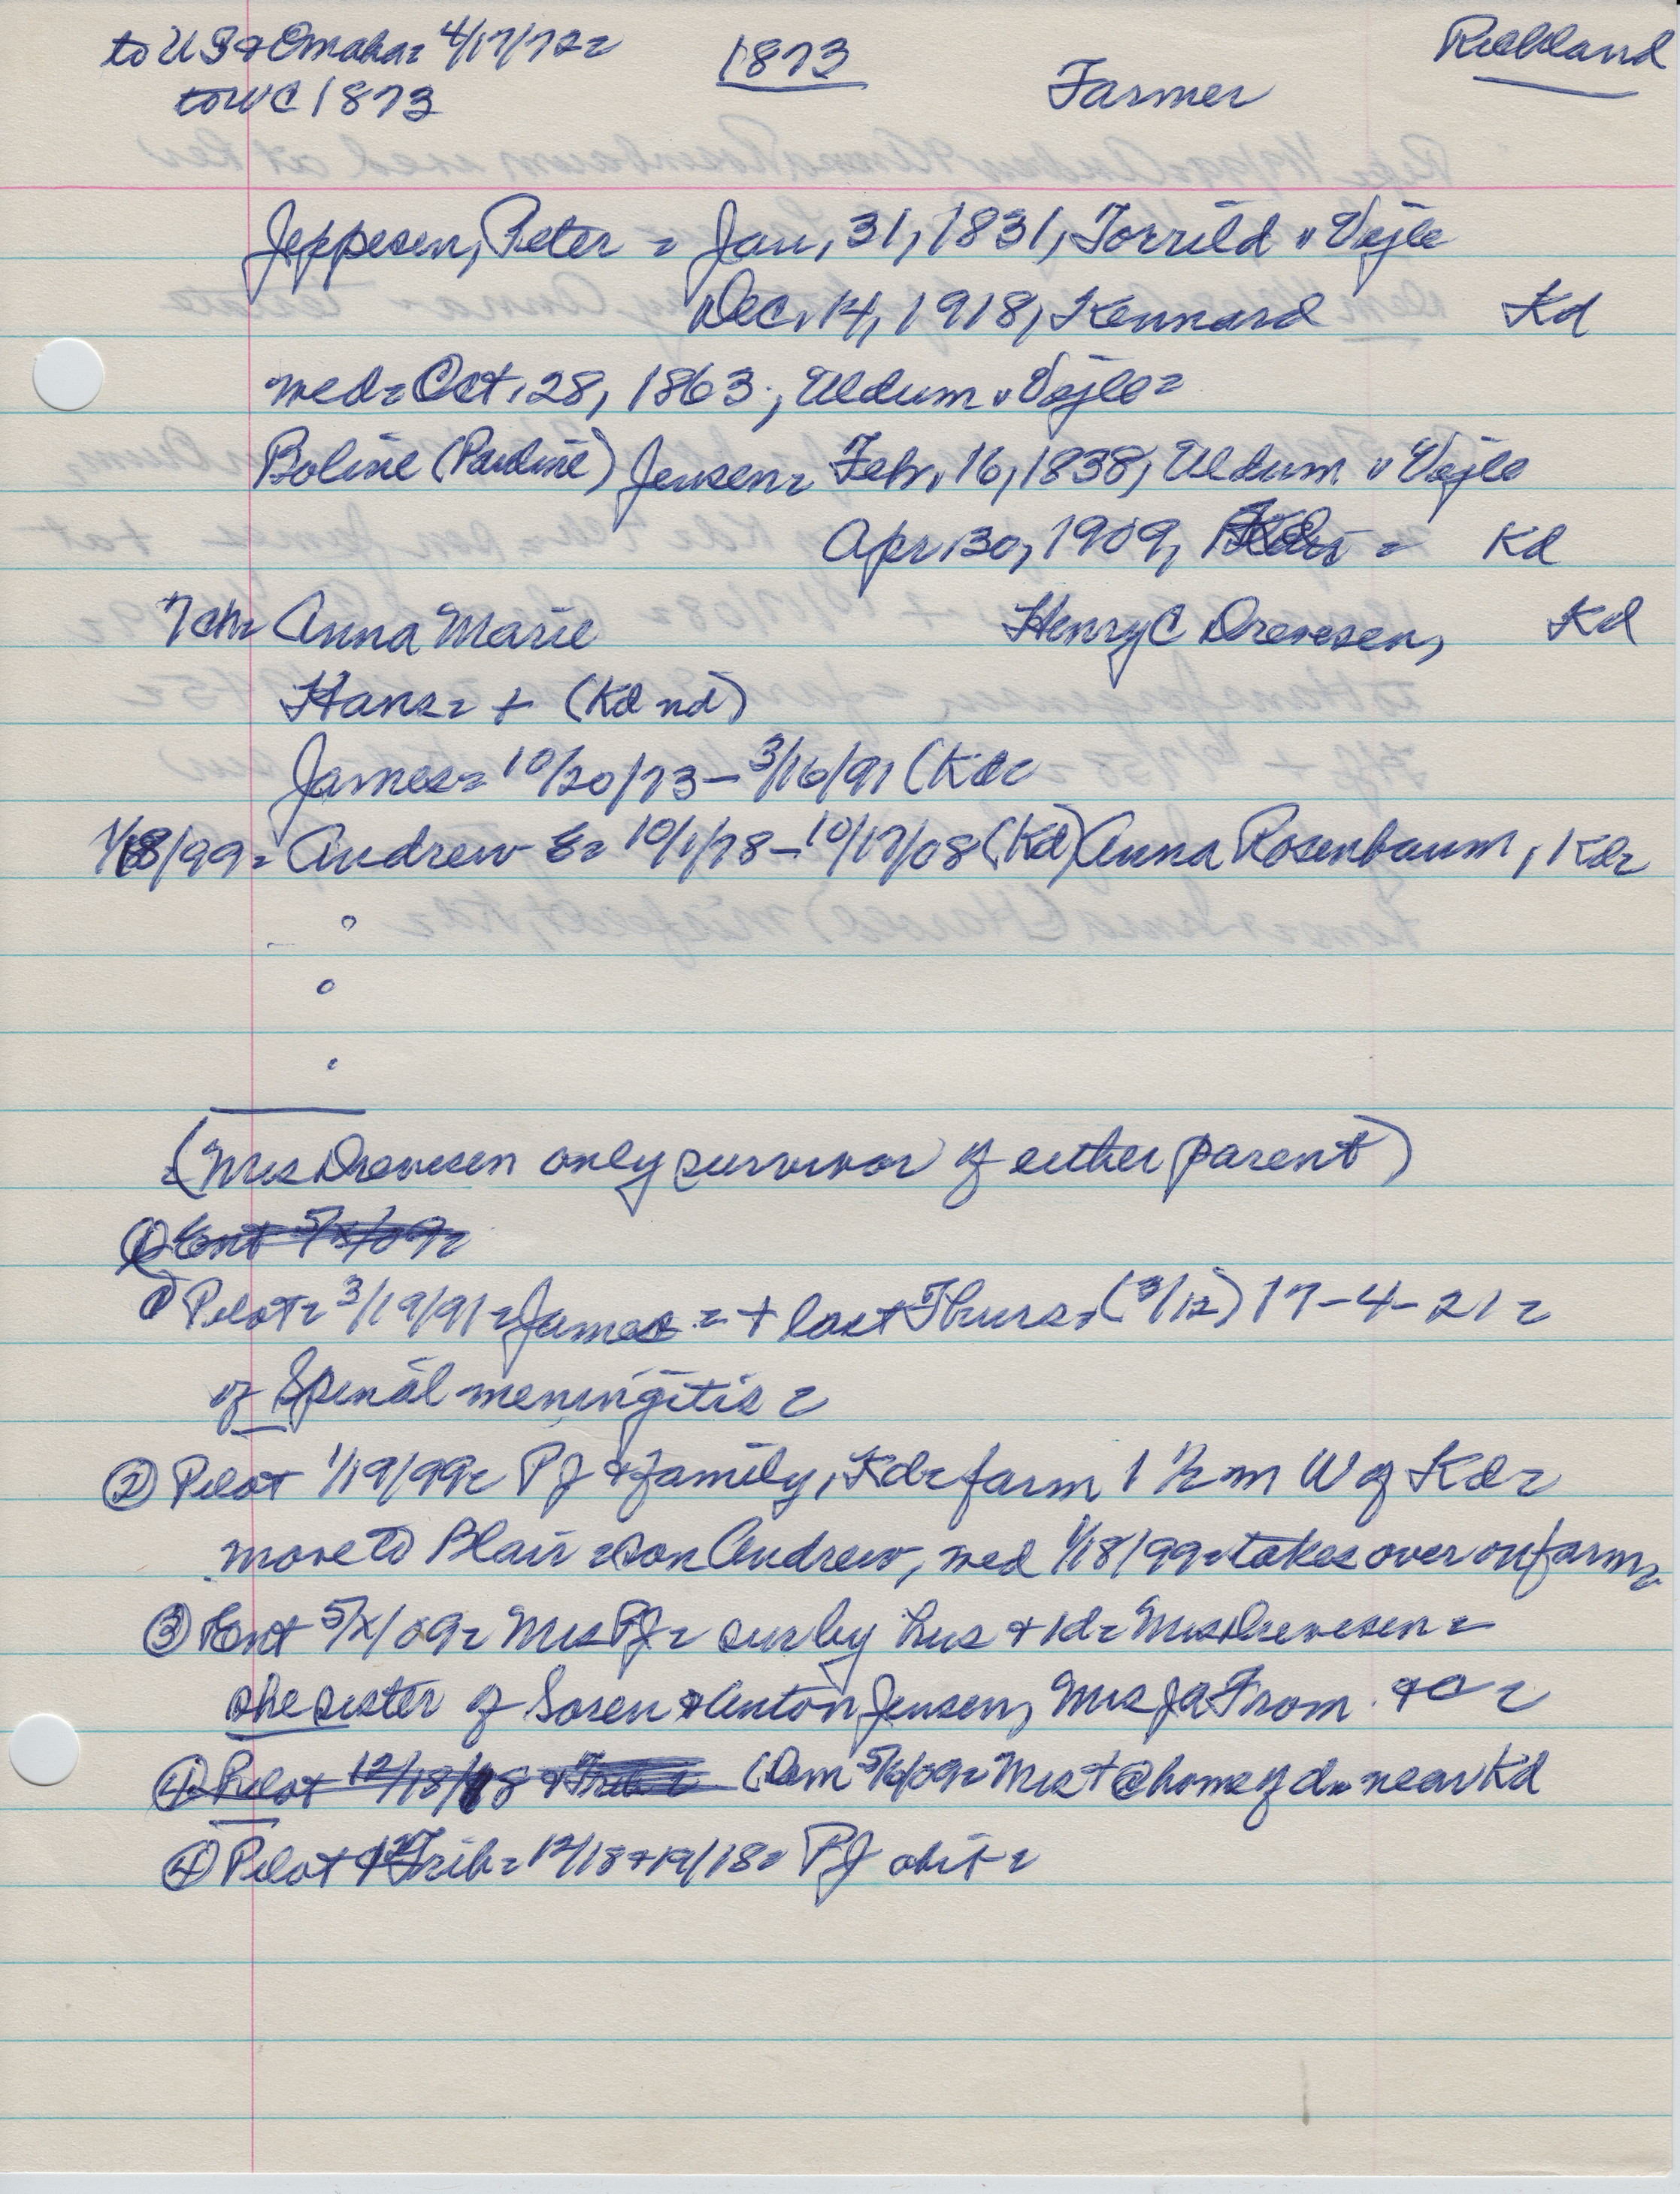 to US & Omaha = 4/17/72 =
1873
Farmer
Richland
to WC 1873
Jeppesen, Peter = Jan, 31, 1831, Torrild, Vejle
Dec. 14, 1918, Kennard Kd
wed = Oct. 28, 1863, Uldum, Vejle =
Boline (Pauline) Jensen = Feb. 16, 1838, Uldum, Vejle
Apr 30, 1909, = Kd
7 ch = Anna Marie Henry C Drevesen, Kd
Hans = + (Kd nd)
James = 10/20/73 - 3/16/91 (Kdc
1/18/99 = Andrew E = 10/1/78 - 10/17/08 (Kd) Anna Rosenbaum, Kd =
(Mrs Drevesen only survivor of either parent)
① Ent 5/x/09 =
① Pilot = 3/19/91 = James = + last Thurs = (3/12) 17-4-21 =
of Spinal meningitis =
② Pilot 1/19/99 = PJ & family, Kd = farm 1 1/2 m W of Kd =
move to Blair = son Andrew, wed 1/18/99 = takes over on farm =
③ Ent 5/x/09 = Mrs PJ = sur by hus & 1d = Mrs Drevesen =
she sister of Soren & Anton Jensen, Mrs JA From & a =
④ Pilot 12/18/18 & Trib = (Dem 5/6/09 = Mrs + @ home of d = near Kd
④ Pilot & Trib = 12/18 + 19/18 = PJ obit =